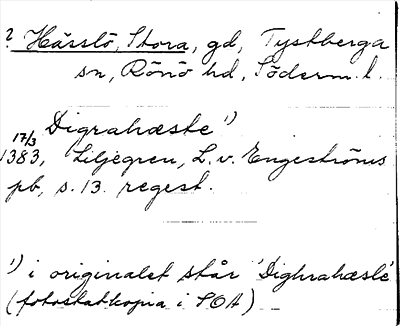 ? Hässlö, Stora, gd, Tystberga
sn, Rönö hd, Söderm. l.
Digrahæsle¹)
17/3
1383, Liljegren, L. v. Engeströms
pb, s. 13. regest.
¹) i originalet står 'Dighrahæsle'
(fotostatkopia i SOA)